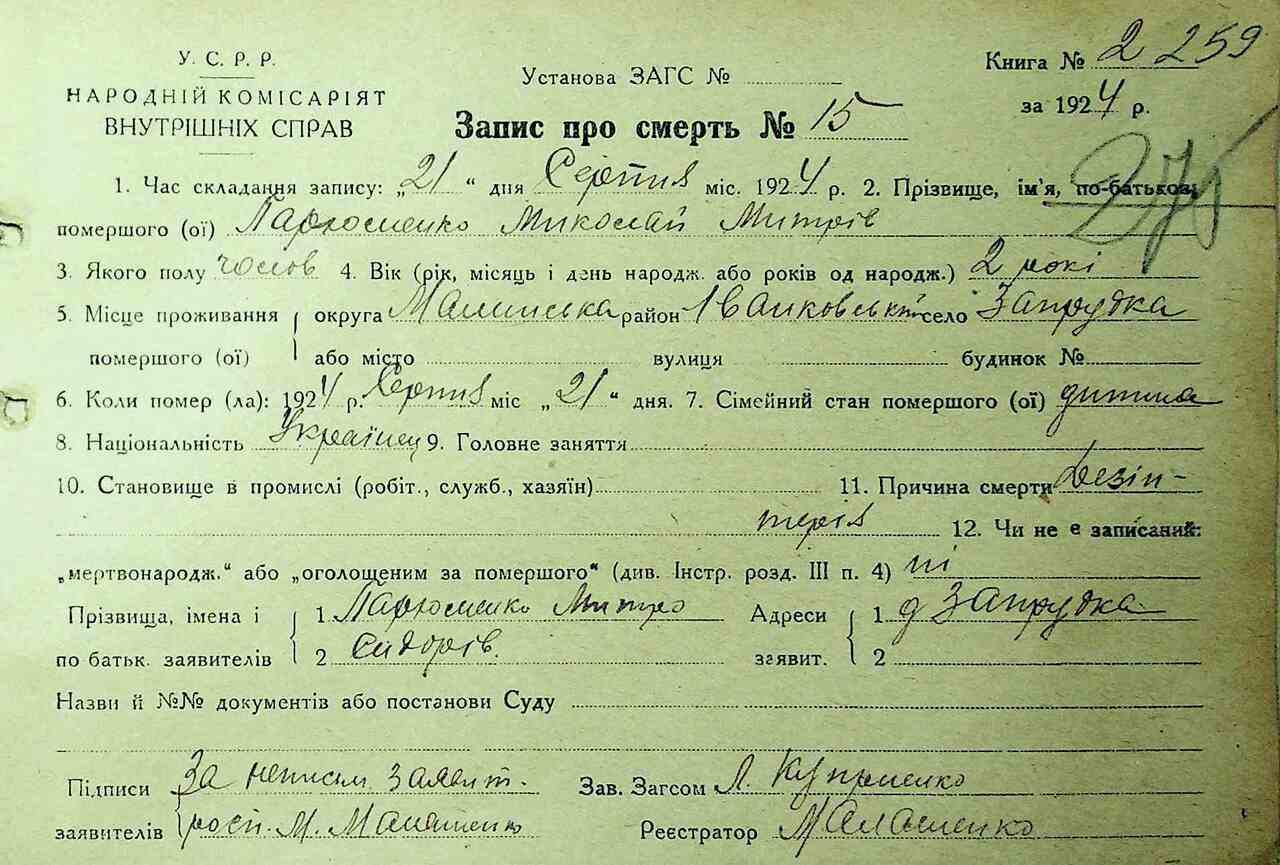 У. С. Р. Р.
НАРОДНІЙ КОМІСАРІЯТ
ВНУТРІШНІХ СПРАВ
Установа ЗАГС №
Книга № 2 259
за 1924 р.
Запис про смерть № 15
276
1. Час складання запису: „21“ дня Серпня міс. 1924 р. 2. Прізвище, ім'я, по-батькові
помершого (ої) Пархоменко Миколай Митрів
3. Якого полу чолов 4. Вік (рік, місяць і день народж. або років од народж.) 2 рокі
5. Місце проживання округа Малинська район Іванковський село Запрудка
помершого (ої) або місто вулиця будинок №
6. Коли помер (ла): 1924 р. Серпня міс „21“ дня. 7. Сімейний стан помершого (ої) дитина
8. Національність Украінец 9. Головне заняття
10. Становище в промислі (робіт., служб., хазяїн) 11. Причина смерти Дезін-
терія 12. Чи не є записаний:
„мертвонародж.“ або „оголощеним за помершого“ (див. Інстр. розд. III п. 4) ні
Прізвища, імена і 1 Пархоменко Митро Адреси 1 д Запрудка
по батьк. заявителів 2 Сидорів. заявит. 2
Назви й №№ документів або постанови Суду
Підписи За неписм заявит. Зав. Загсом Л. Куприенко
заявителів росп. М. Малашенко Реєстратор Малашенко